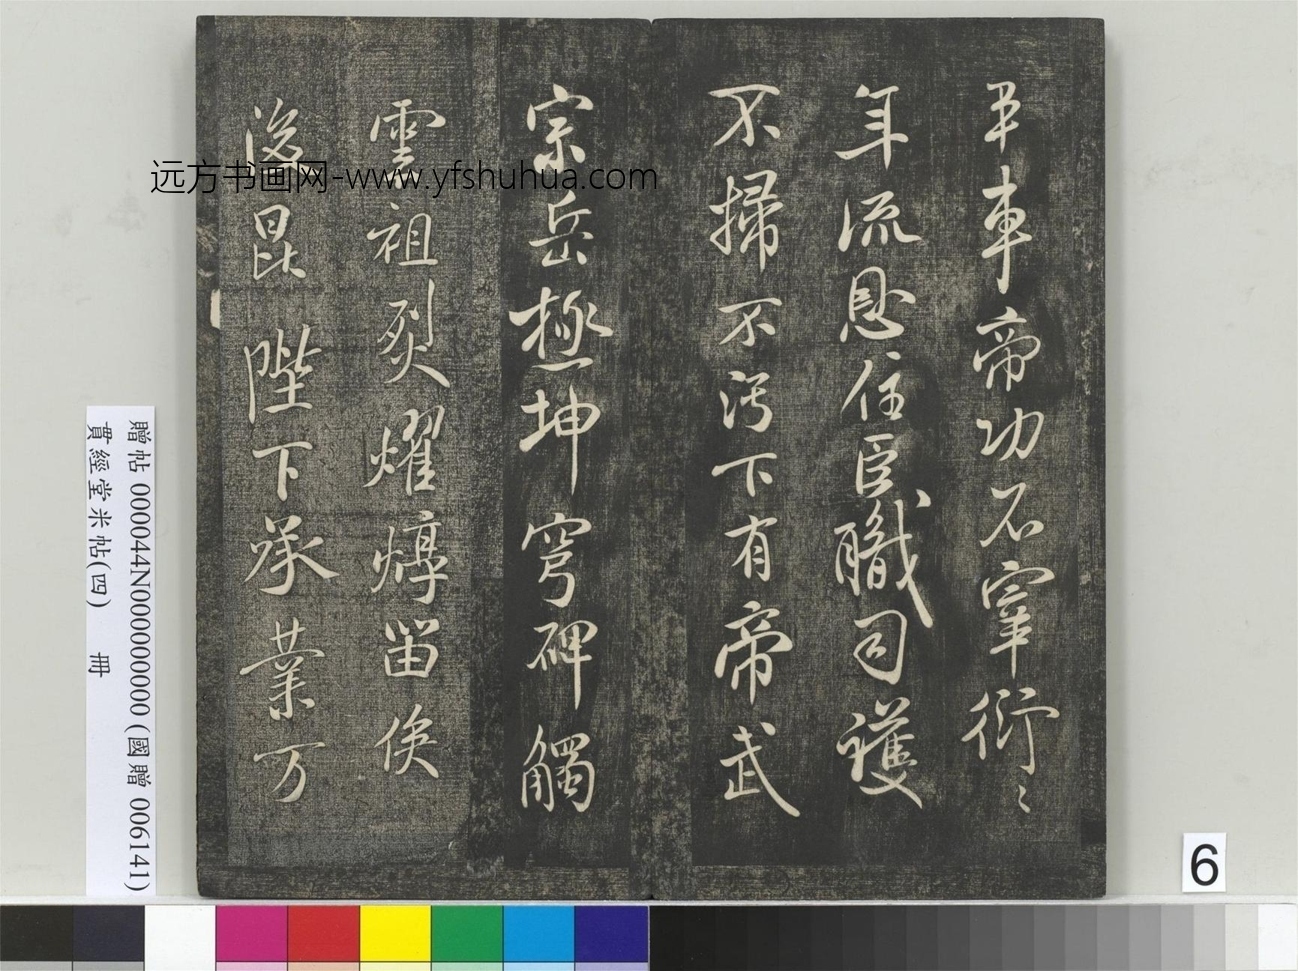 平車帝功不宰衍〻
年流恩住臣職司護
不掃不污下有帝武
宗岳極坤穹碑觸
雲祖烈耀焞留侯
後昆陛下承業万
远方书画网-www.yfshuhua.com
贈帖 000044N000000000 (國贈 006141)
貫經堂米帖(四) 冊
6